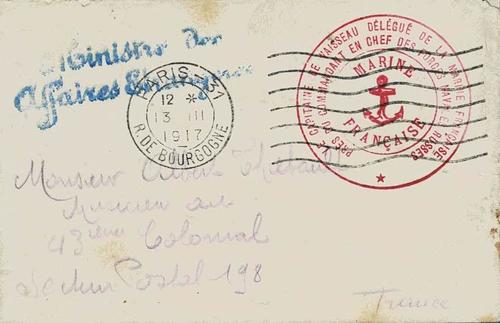 Ministre des
Affaires Etrangères
PARIS - 31
12 *
13 III
1917
R. DE BOURGOGNE
LE CAPITAINE DE VAISSEAU DÉLÉGUÉ DE LA MARINE FRANÇAISE
PRÈS DU COMMANDANT EN CHEF DES FORCES NAVALES RUSSES
MARINE
FRANÇAISE
Monsieur Albert Thébault
au
43ième Colonial
Secteur Postal 198
France